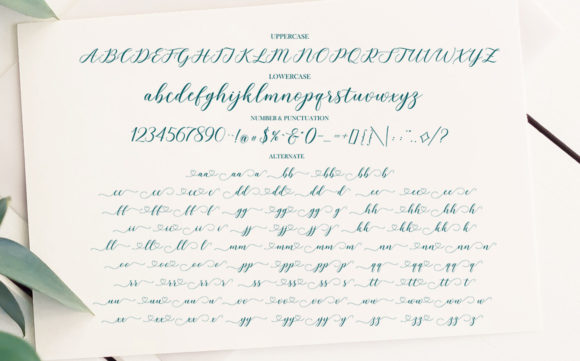 UPPERCASE
ABCDEFGHIJKLMNOPQRSTUVWXYZ
LOWERCASE
abcdefghijklmnopqrstuvwxyz
NUMBER & PUNCTUATION
1234567890 !@#$% & ()-_=+[]{|\ : ; " .. /?
ALTERNATE
aa aa a bb bb b
cc cc c dd dd d ee ee e
ff ff f gg gg g hh hh h
ii ii i jj jj j kk kk k
ll ll l mm mm m nn nn n
oo oo o pp pp p qq qq q
rr rr r ss ss s tt tt t
uu uu u vv vv v ww ww w
xx xx x yy yy y zz zz z